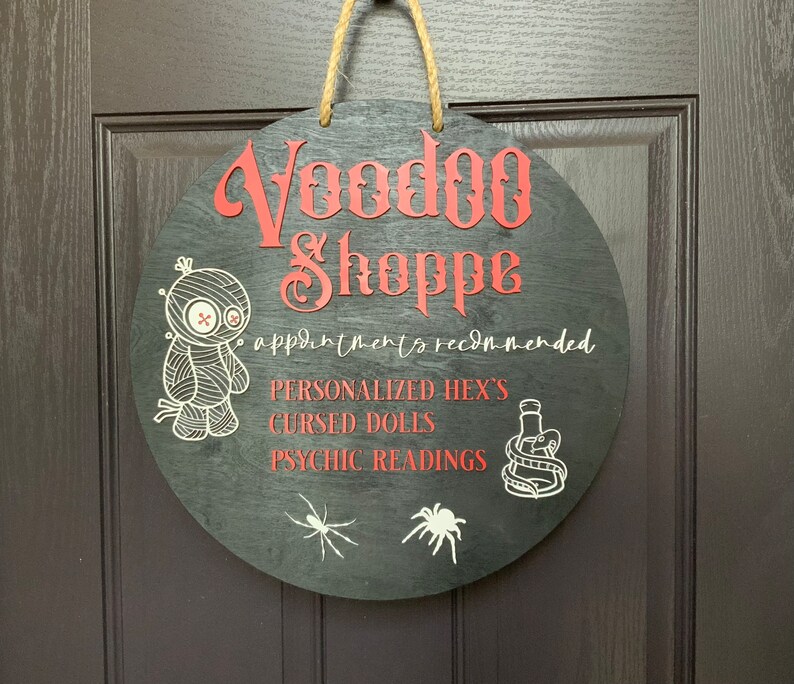 Voodoo
Shoppe
appointments recommended
PERSONALIZED HEX'S
CURSED DOLLS
PSYCHIC READINGS